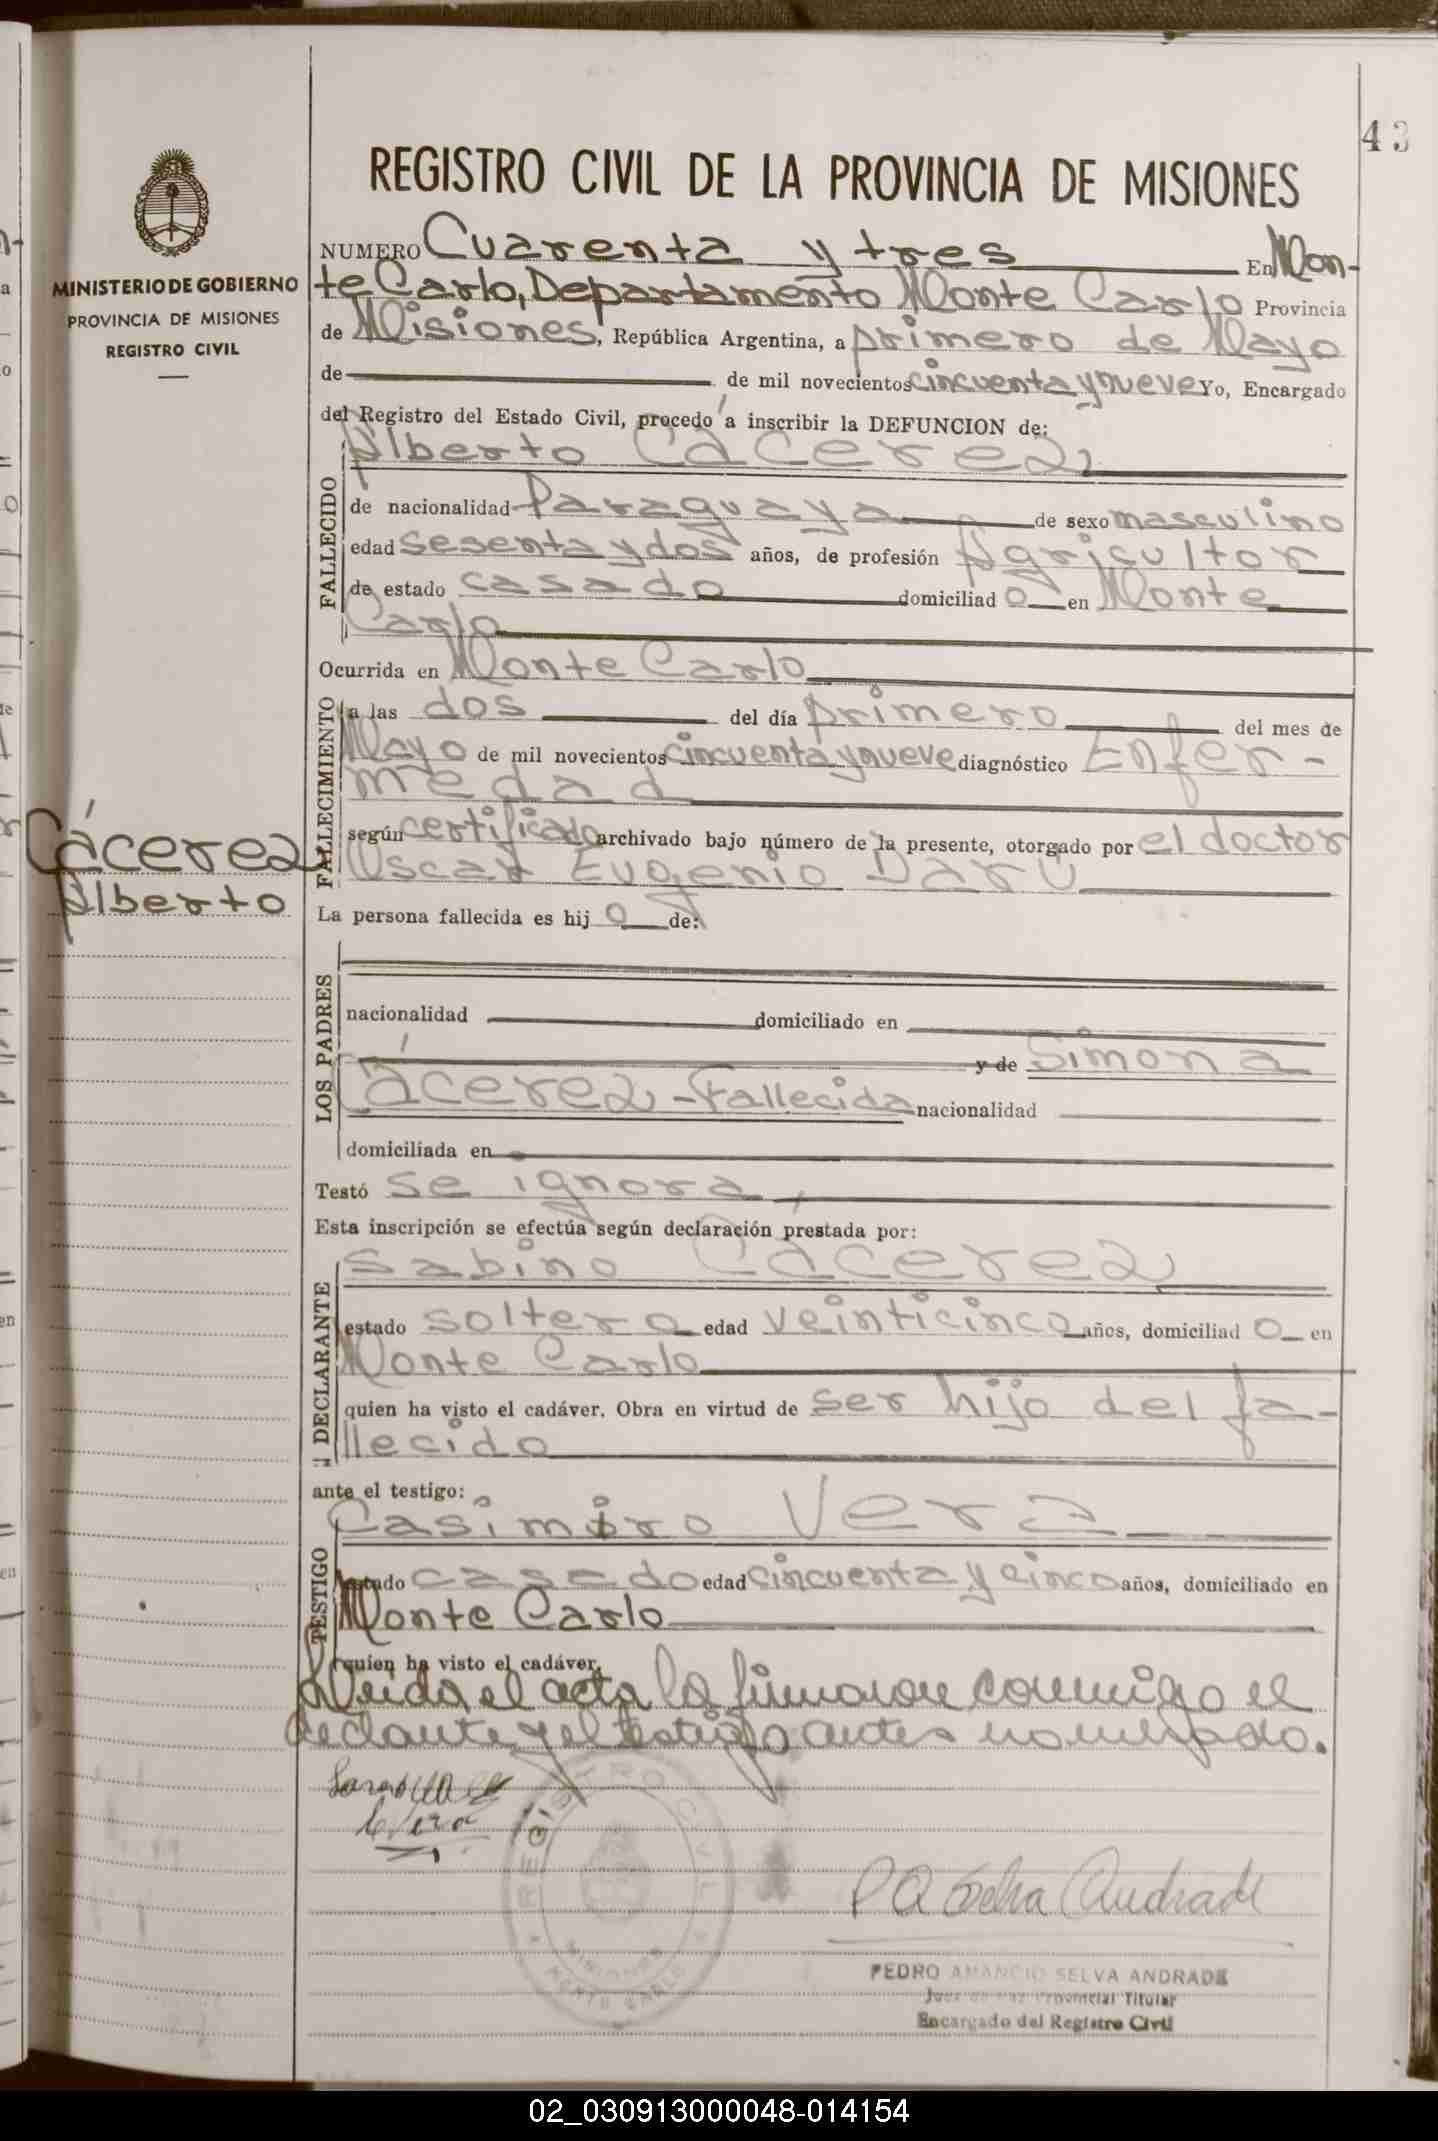 43
REGISTRO CIVIL DE LA PROVINCIA DE MISIONES
MINISTERIO DE GOBIERNO
PROVINCIA DE MISIONES
REGISTRO CIVIL
NUMERO Cuarenta y tres En Mon-
te Carlo, Departamento Monte Carlo Provincia
de Misiones, República Argentina, a primero de Mayo
de de mil novecientos cincuenta y nueve Yo, Encargado
del Registro del Estado Civil, procedo a inscribir la DEFUNCION de:
FALLECIDO
Alberto Cácerez
de nacionalidad Paraguaya de sexo masculino
edad sesenta y dos años, de profesión Agricultor
de estado casado domiciliad o en Monte
Carlo
Ocurrida en Monte Carlo
FALLECIMIENTO
a las dos del día primero del mes de
Mayo de mil novecientos cincuenta y nueve diagnóstico Enfer-
medad
según certificado archivado bajo número de la presente, otorgado por el doctor
Oscar Eugenio Daru
Cácerez
Alberto
La persona fallecida es hij o de:
LOS PADRES
nacionalidad domiciliado en
y de Simona
Cácerez - Fallecida nacionalidad
domiciliada en
Testó se ignora
Esta inscripción se efectúa según declaración prestada por:
DECLARANTE
Sabino Cácerez
estado soltero edad veinticinco años, domiciliad o en
Monte Carlo
quien ha visto el cadáver. Obra en virtud de ser hijo del fa-
llecido
ante el testigo:
TESTIGO
Casimiro Vera
estado casado edad cincuenta y cinco años, domiciliado en
Monte Carlo
quien ha visto el cadáver.
Leida el acta la firmaron conmigo el
declante y el testigo antes nombrado.
C Vera
REGISTRO CIVIL
MISIONES
MONTE CARLO
P A Selva Andrade
PEDRO AMANCIO SELVA ANDRADE
Juez de Paz Provincial Titular
Encargado del Registro Civil
02_030913000048-014154